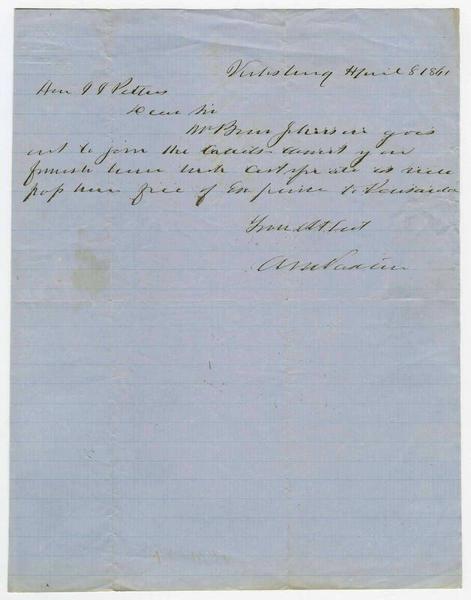 Vicksburg April 8 1861
Hon J J Pettus
Dear Sir
Mr Benj Johnson goes
out to join the Cadets
furnish him with Certificate as will
pass him free of Expense to Pensacola
Your Obt Svt